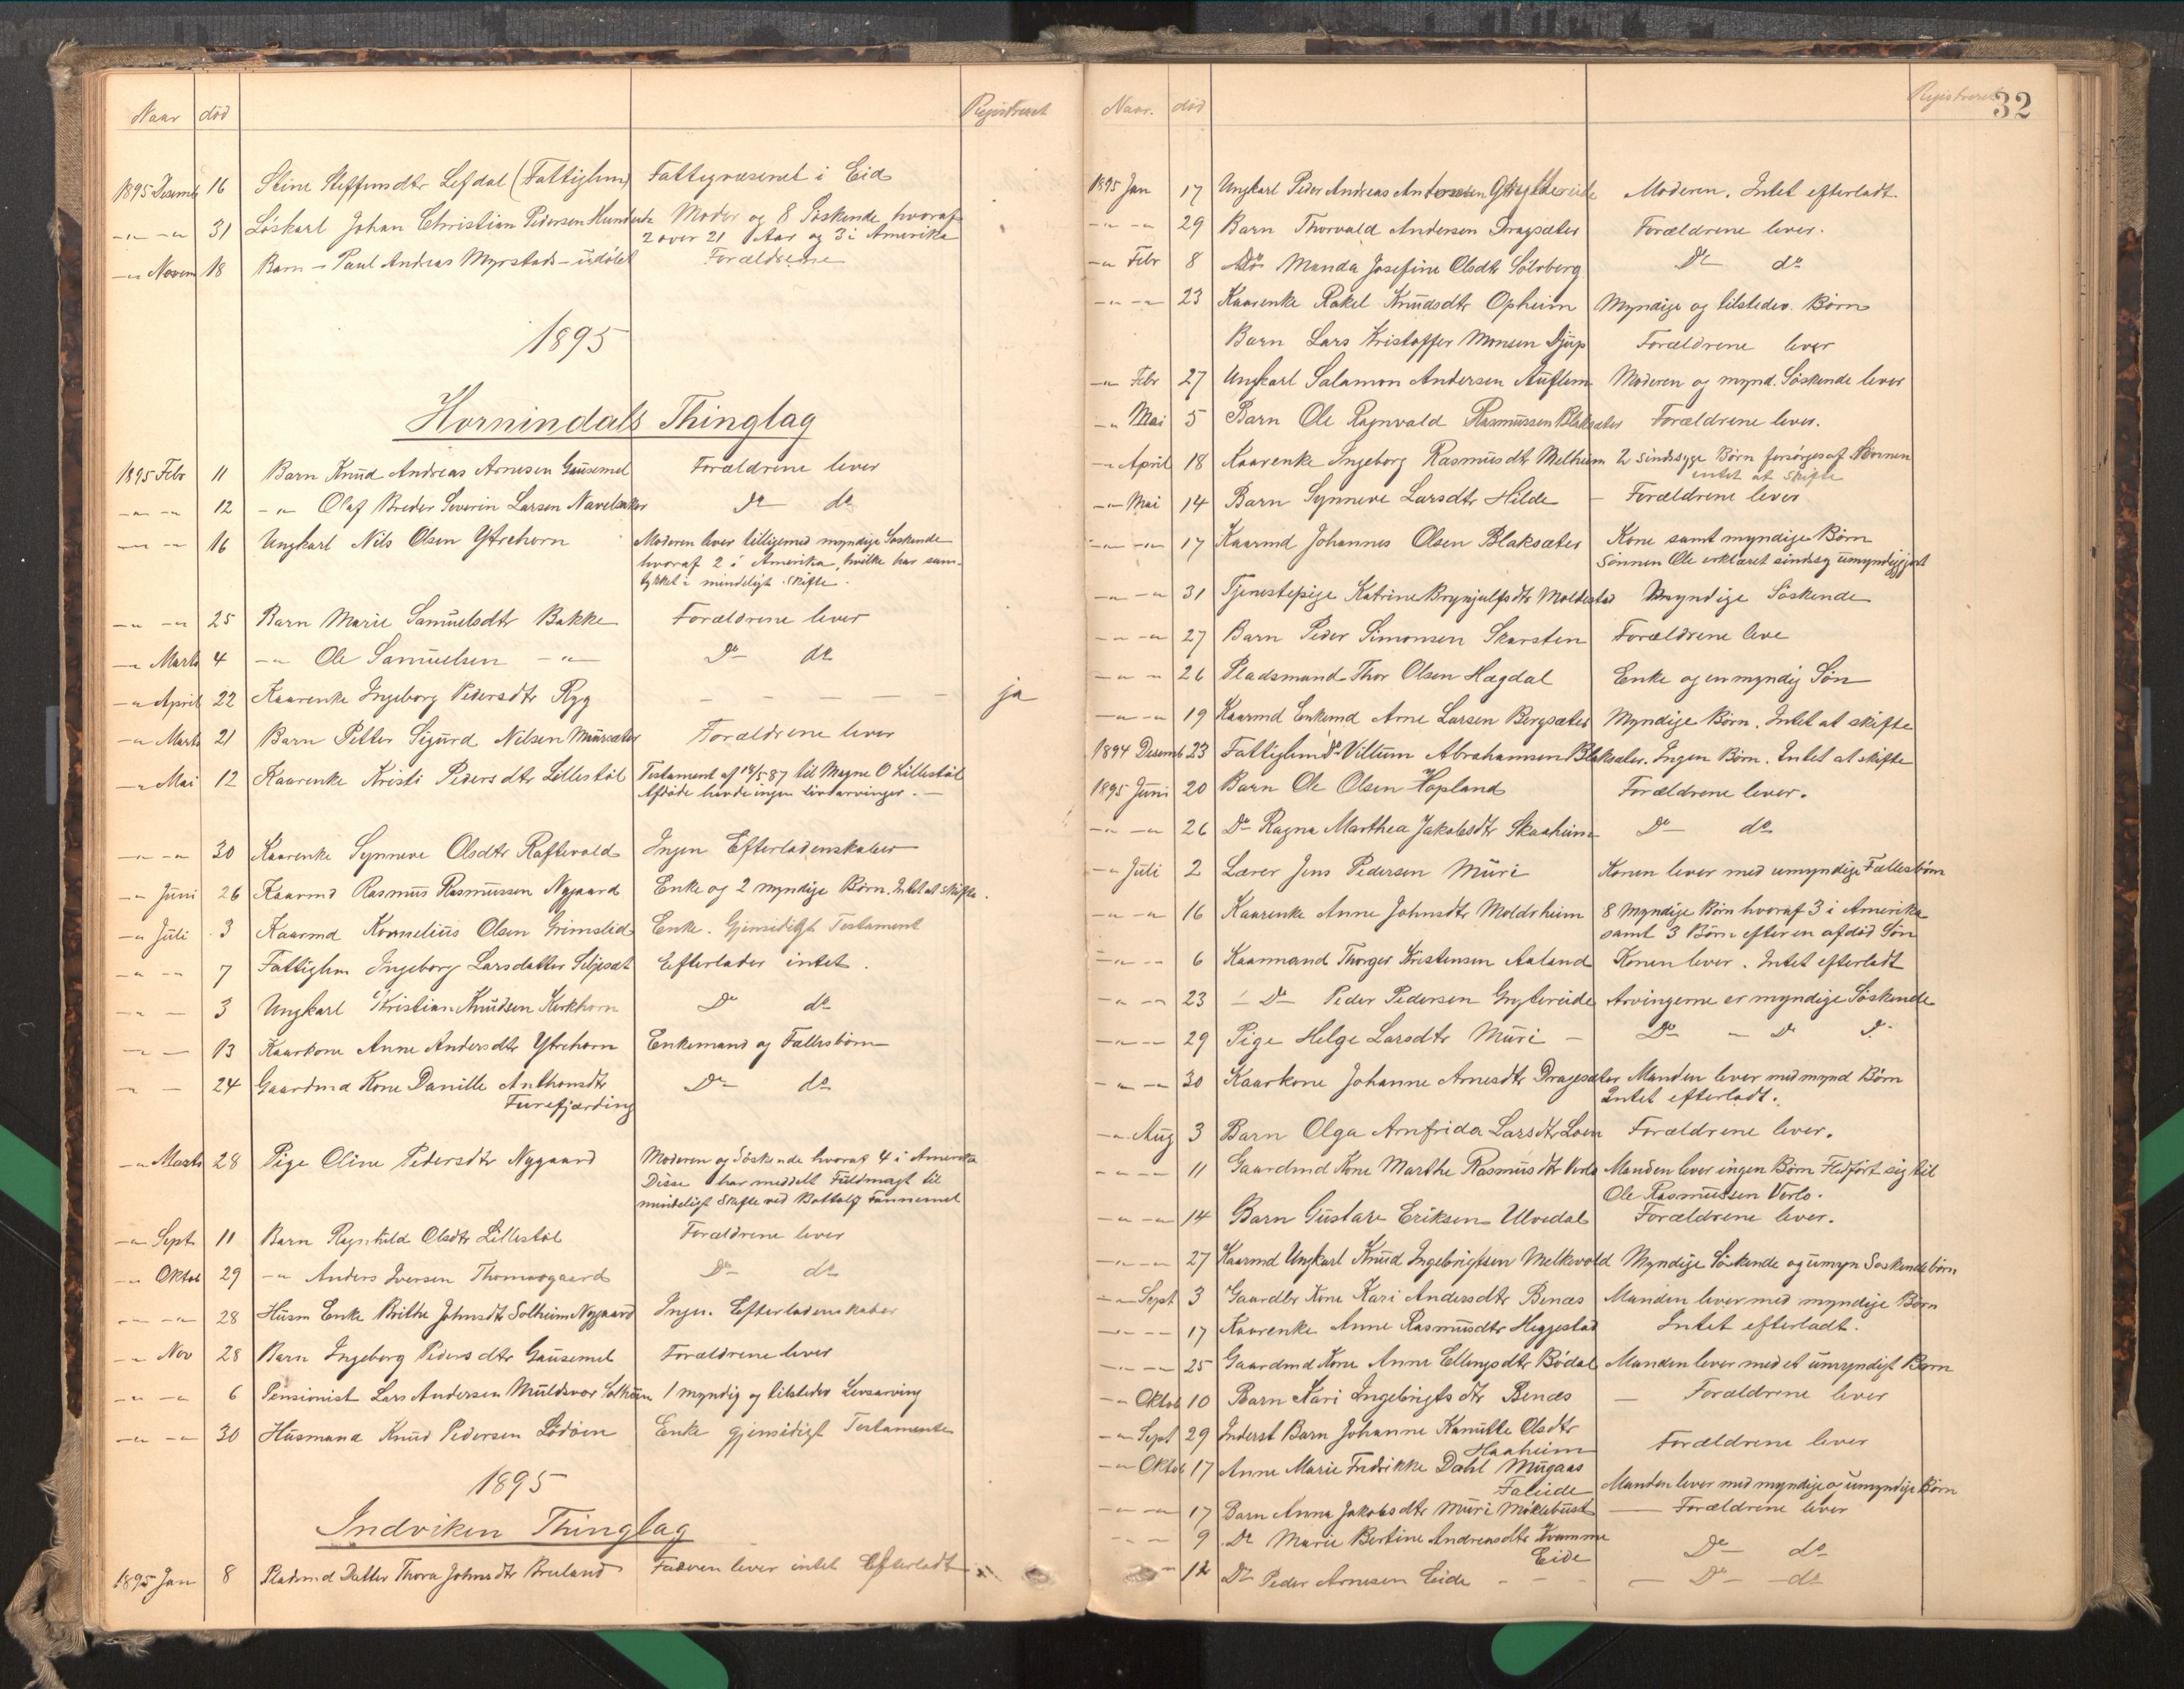 Naar død Registreret
1895 Desemb 16 Stine Steffensdtr Lefdal (Fattiglem) Fattigvæsenet i Eid
-"- -"- 31 Løskarl Johan Christian Pedersen Hundeide Moder og 8 Søskende, hvoraf
2 over 21 Aar og 3 i Amerika
-"- Novem 18 Barn - Paul Andreas Myrstad - udøbt Forældrene
1895
Hornindals Thinglag
1895 Febr 11 Barn Knud Andreas Arnesen Gausemel Forældrene lever
-"- -"- 12 -"- Olaf Breder Severin Larsen Navelsaker Do do
-"- -"- 16 Ungkarl Nils Olsen Ytrehorn Moderen lever tilligemed myndige Søskende
hvoraf 2 i Amerika, hvilke har sam-
tykket i mindeligt skifte.
-"- -"- 25 Barn Marie Samuelsdtr Bakke Forældrene lever
-"- Marts 4 -"- Ole Samuelsen -"- Do do
-"- April 22 Kaarenke Ingeborg Pedersdtr Ryg - - - - - ja
-"- Marts 21 Barn Petter Sigurd Nilsen Mursæter Forældrene lever
-"- Mai 12 Kaarenke Kristi Pedersdtr Lillestøl Testament af 18/5 87 til Magne O Lillestøl
Afdøde havde ingen livsarvinger. -
-"- -"- 30 Kaarenke Synneve Olsdtr Raftevold Ingen Efterladenskaber
-"- Juni 26 Kaarmd Rasmus Rasmussen Nygaard Enke og 2 myndige Børn. Intet at skifte.
-"- Juli 3 Kaarmd Kornelius Olsen Grimslid Enke. Gjensidigt Testament
-"- -"- 7 Fattiglem Ingeborg Larsdatter Siljesæt Efterlader intet.
-"- - 3 Ungkarl Kristian Knudsen Kirkhorn Do do
-"- - 13 Kaarkone Anne Andersdtr Ytrehorn Enkemand og Fællesbørn
-"- - 24 Gaardmd Kone Danille Anthonsdtr Do do
Furefjærding
-"- Marts 28 Pige Oline Pedersdtr Nygaard Moderen og Søskende hvoraf 4 i Amerika
Disse har meddelt Fuldmagt til
mindeligt Skifte ved Bottolf Tannemel
-"- Sept 11 Barn Ragnhild Olsdtr Lillestøl Forældrene lever
-"- Oktob 29 -"- Anders Iversen Thomasgaard Do do
-"- -"- 28 Husm Enke Brithe Johnsdtr Solheim Nygaard Ingen Efterladenskaber
-"- Nov 28 Barn Ingeborg Pedersdtr Gausemel Forældrene lever
-"- -"- 6 Pensionist Lars Andersen Muldsvor Solheim 1 myndig og tilstedev Livsarving
-"- -"- 30 Husmand Knud Pedersen Lødøen Enke gjensidigt Testamente
1895
Indviken Thinglag
1895 Jan 8 Pladsmd Datter Thora Johnsdtr Bruland Faderen lever intet Efterladt
Naar. død Registreret 32
1895 Jan 17 Ungkarl Peder Andreas Antonsen Gryttereide Moderen. Intet efterladt.
-"- -"- 29 Barn Thorvald Andersen Dragsæter Forældrene lever.
-"- Febr 8 Do Manda Josefine Olsdtr Sølvberg Do do
-"- -"- 23 Kaarenke Rakel Knudsdtr Opheim Myndige og tilstedev. Børn
Barn Lars Kristoffer Monsen Djup Forældrene lever
-"- Febr 27 Ungkarl Salamon Andersen Auflem Moderen og mynd. Søskende lever
-"- Mai 5 Barn Ole Ragnvald Rasmussen Blaksæter Forældrene lever.
-"- April 18 Kaarenke Ingeborg Rasmusdtr Melheim 2 sindssyge Børn forsørges af Kommunen
intet at skifte
-"- Mai 14 Barn Synneve Larsdtr Hilde - Forældrene lever
-"- -"- 17 Kaarmd Johannes Olsen Blaksæter Kone samt myndige Børn
Sønnen Ole erklæret sindssyg umyndiggjort
-"- -"- 31 Tjenestepige Katrine Brynjulfsdtr Moldestad Myndige Søskende
-"- -"- 27 Barn Peder Simonsen Skarsten Forældrene leve
-"- -"- 26 Pladsmand Thor Olsen Hægdal Enke og en myndig Søn
-"- -"- 19 Kaarmd Enkemd Arne Larsen Bergsæter Myndige Børn. Intet at skifte
1894 Desemb 23 Fattiglem Do Villum Abrahamsen Blaksæter. Ingen Børn. Intet at skifte
1895 Juni 20 Barn Ole Olsen Hopland Forældrene lever.
-"- -"- 26 Do Ragna Marthea Jakobsdtr Skaaheim Do do
-"- Juli 2 Lærer Jens Pedersen Muri Konen lever med umyndige Fællesbørn
-"- -"- 16 Kaarenke Anne Johnsdtr Moldrheim 8 Myndige Børn hvoraf 3 i Amerika
samt 3 Børn efter en afdød Søn
-"- -"- 6 Kaarmand Thorger Kristensen Aaland Konen lever. Intet efterladt
-"- -"- 23 - Do Peder Pedersen Grytereide Arvingerne er myndige Søskende
-"- -"- 29 Pige Helge Larsdtr Muri - Do - Do Do
-"- -"- 30 Kaarkone Johanne Arnesdtr Dragesæter Manden lever med mynd Børn
Intet efterladt.
-"- Aug 3 Barn Olga Arnfrida Larsdtr Loen Forældrene lever.
-"- -"- 11 Gaardmd Kone Marthe Rasmusdtr Verlo Manden lever ingen Børn Fledført sig til
Ole Rasmussen Verlo.
-"- -"- 14 Barn Gustav Eriksen Ulvedal Forældrene lever.
-"- -"- 27 Kaarmd Ungkarl Knud Ingebrigtsen Melkevold Myndige Søskende og umyn Søskendebørn
-"- Sept 3 Gaardbr Kone Kari Andersdtr Benæs Manden lever med myndige Børn
-"- -"- 17 Kaarenke Anne Rasmusdtr Heggestad Intet efterladt.
-"- -"- 25 Gaardmd Kone Anne Ellingsdtr Bødal Manden lever med et umyndigt Barn
-"- Oktob 10 Barn Kari Ingebrigtsdtr Benæs - Forældrene lever
-"- Sept 29 Inderst Barn Johanne Kanutte Olsdtr
Haaheim Forældrene lever
-"- Oktob 17 Anne Marie Fredrikke Dahl Mugaas
Faleide Manden lever med myndige og umyndige Børn
-"- -"- 17 Barn Anna Jakobsdtr Muri Moklebust - Forældrene lever
-"- - 9 Do Marie Bertine Andreasdtr Kvamme
Eide Do do
-"- 12 Do Peder Arnesen Eide - - - - Do - do